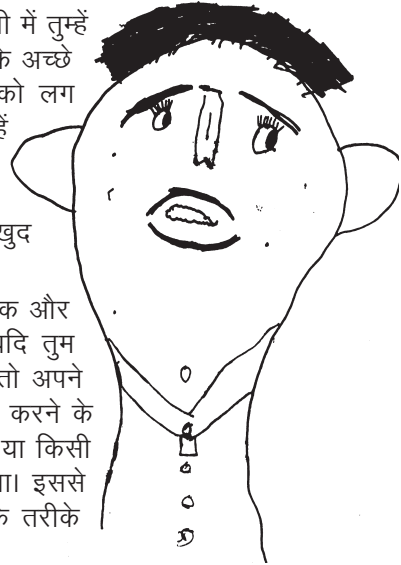 ी में तुम्हें
के अच्छे
को लग
हें
खुद
क और
यदि तुम
तो अपने
करने के
या किसी
ा। इससे
के तरीके